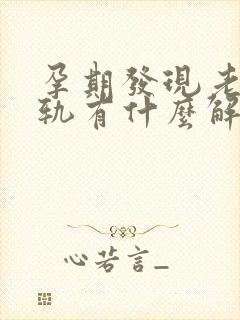 孕期發現老
軌有什麼解
心若言_